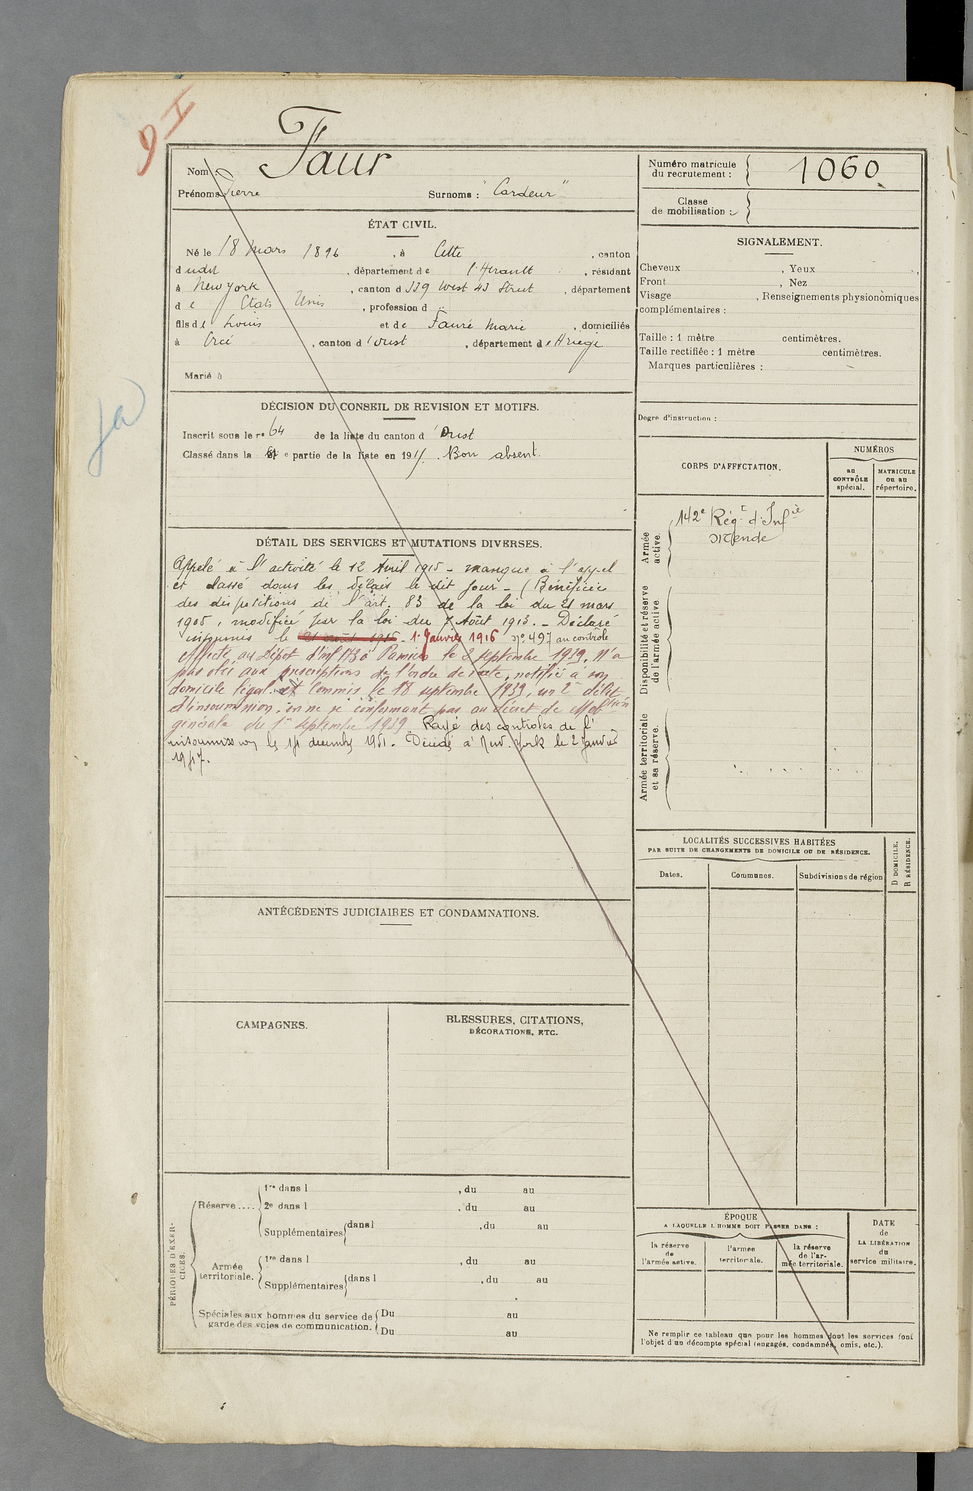 9 I
Nom Faur
Prénoms Pierre Surnoms : "Cardeur"
Numéro matricule du recrutement : 1060
Classe de mobilisation :
ÉTAT CIVIL.
Né le 18 Mars 1896, à Cette, canton
dudit, département de l'Hérault, résidant
à New york, canton d 339 West 43 Street, département
de Etats Unis, profession d
fils de Louis et de Fauré Marie, domiciliés
à Orcé, canton d'Oust, département de Ariège
Marié à
DÉCISION DU CONSEIL DE REVISION ET MOTIFS.
Inscrit sous le n° 64 de la liste du canton d'Oust
Classé dans la e partie de la liste en 1915. Bon absent.
DÉTAIL DES SERVICES ET MUTATIONS DIVERSES.
Appelé à l'activité le 12 Avril 1915 - manque à l'appel
et classé dans les délais le dit jour - (Bénéficie
des dispositions de l'art. 83 de la loi du 21 mars
1905, modifiée par la loi du 7 Août 1913. - Déclaré
insoumis le 1er Janvier 1916 n° 497 au controle
Affecté au Dépôt d'Inf 173 à Pamiers le 2 septembre 1939. N'a
pas obéi aux prescriptions de l'ordre de route, notifié à son
domicile légal et commis le 18 septembre 1939, un 2e délit
d'insoumission, en ne se conformant pas au décret de Mobtion
générale du 1er septembre 1939 Rayé des controles de l'
insoumission le 14 decembre 1951. Décédé à New-York le 2 Janvier
1947.
ANTÉCÉDENTS JUDICIAIRES ET CONDAMNATIONS.
CAMPAGNES.
BLESSURES, CITATIONS,
DÉCORATIONS, ETC.
PÉRIODES D'EXERCICES.
Réserve....
1re dans l , du au
2e dans l , du au
Supplémentaires dans l , du au
Armée territoriale.
1re dans l , du au
Supplémentaires dans l , du au
Spéciales aux hommes du service de Du au
garde des voies de communication. Du au
SIGNALEMENT.
Cheveux , Yeux
Front , Nez
Visage , Renseignements physionomiques
complémentaires :
Taille : 1 mètre centimètres.
Taille rectifiée : 1 mètre centimètres.
Marques particulières :
Degré d'instruction :
CORPS D'AFFECTATION.
NUMÉROS
au CONTRÔLE spécial.
MATRICULE ou au répertoire.
Armée active.
142e Régt d'Infie
Mende
Disponibilité et réserve de l'armée active.
Armée territoriale et sa réserve.
LOCALITÉS SUCCESSIVES HABITÉES
PAR SUITE DE CHANGEMENTS DE DOMICILE OU DE RÉSIDENCE.
D DOMICILE.
R RÉSIDENCE.
Dates. Communes. Subdivisions de région
ÉPOQUE
A LAQUELLE L'HOMME DOIT PASSER DANS :
la réserve de l'armée active.
l'armée territoriale.
la réserve de l'armée territoriale.
DATE
de
LA LIBÉRATION
du
service militaire.
Ne remplir ce tableau que pour les hommes dont les services font
l'objet d'un décompte spécial (engagés, condamnés, omis, etc.).